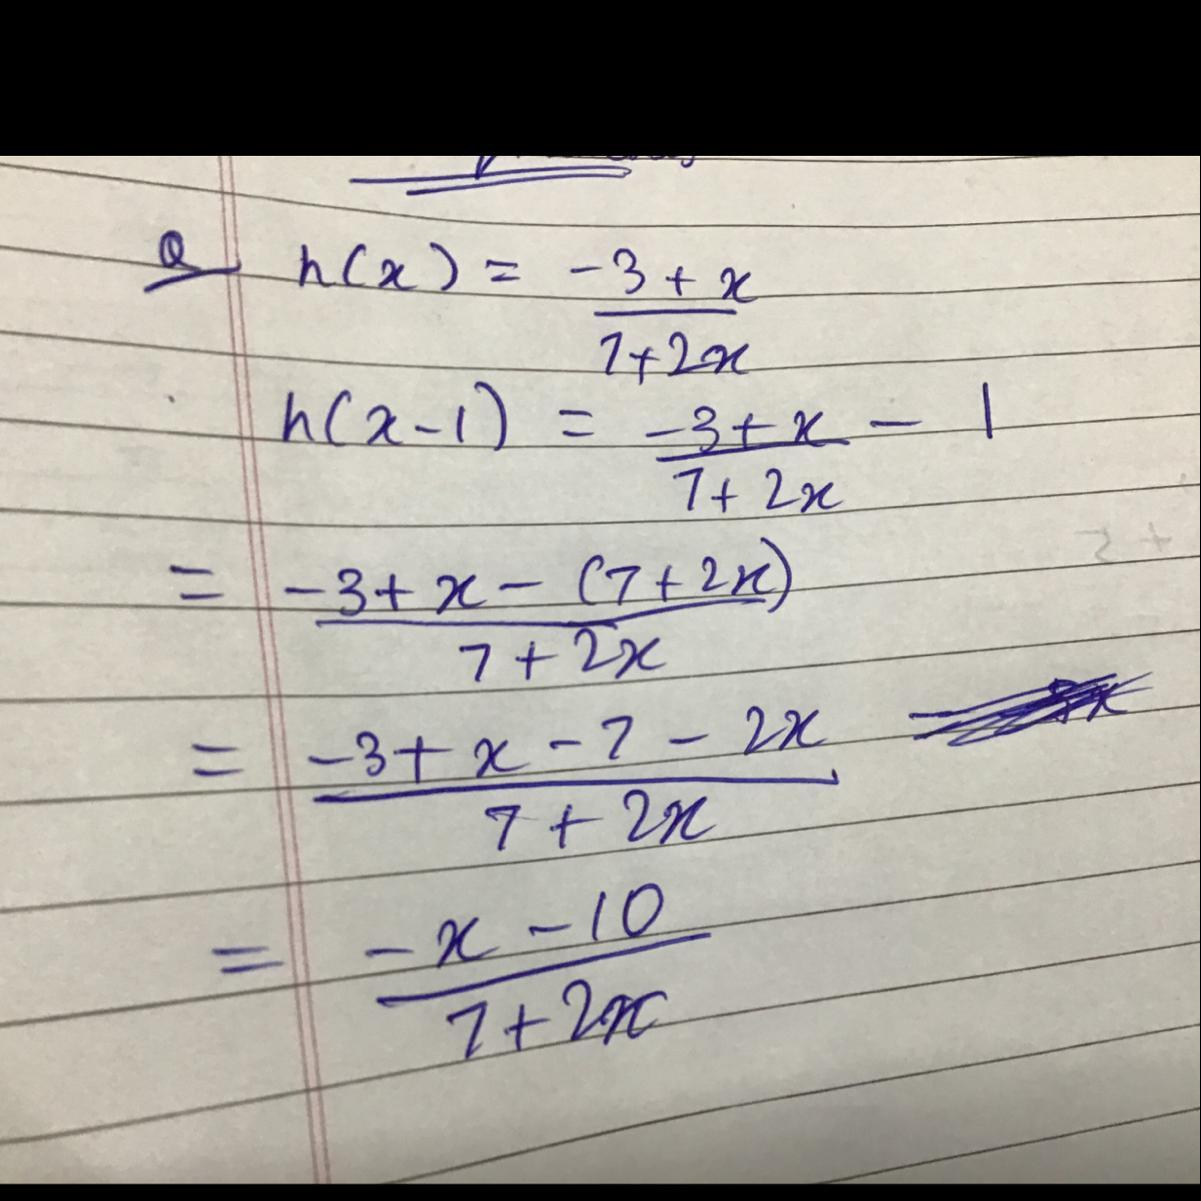 Q h(x) = -3 + x
7+2x
h(x-1) = -3+x - 1
7+ 2x
= -3+ x - (7+2x)
7+2x
= -3+ x -7 - 2x
7 + 2x
= -x -10
7+2x